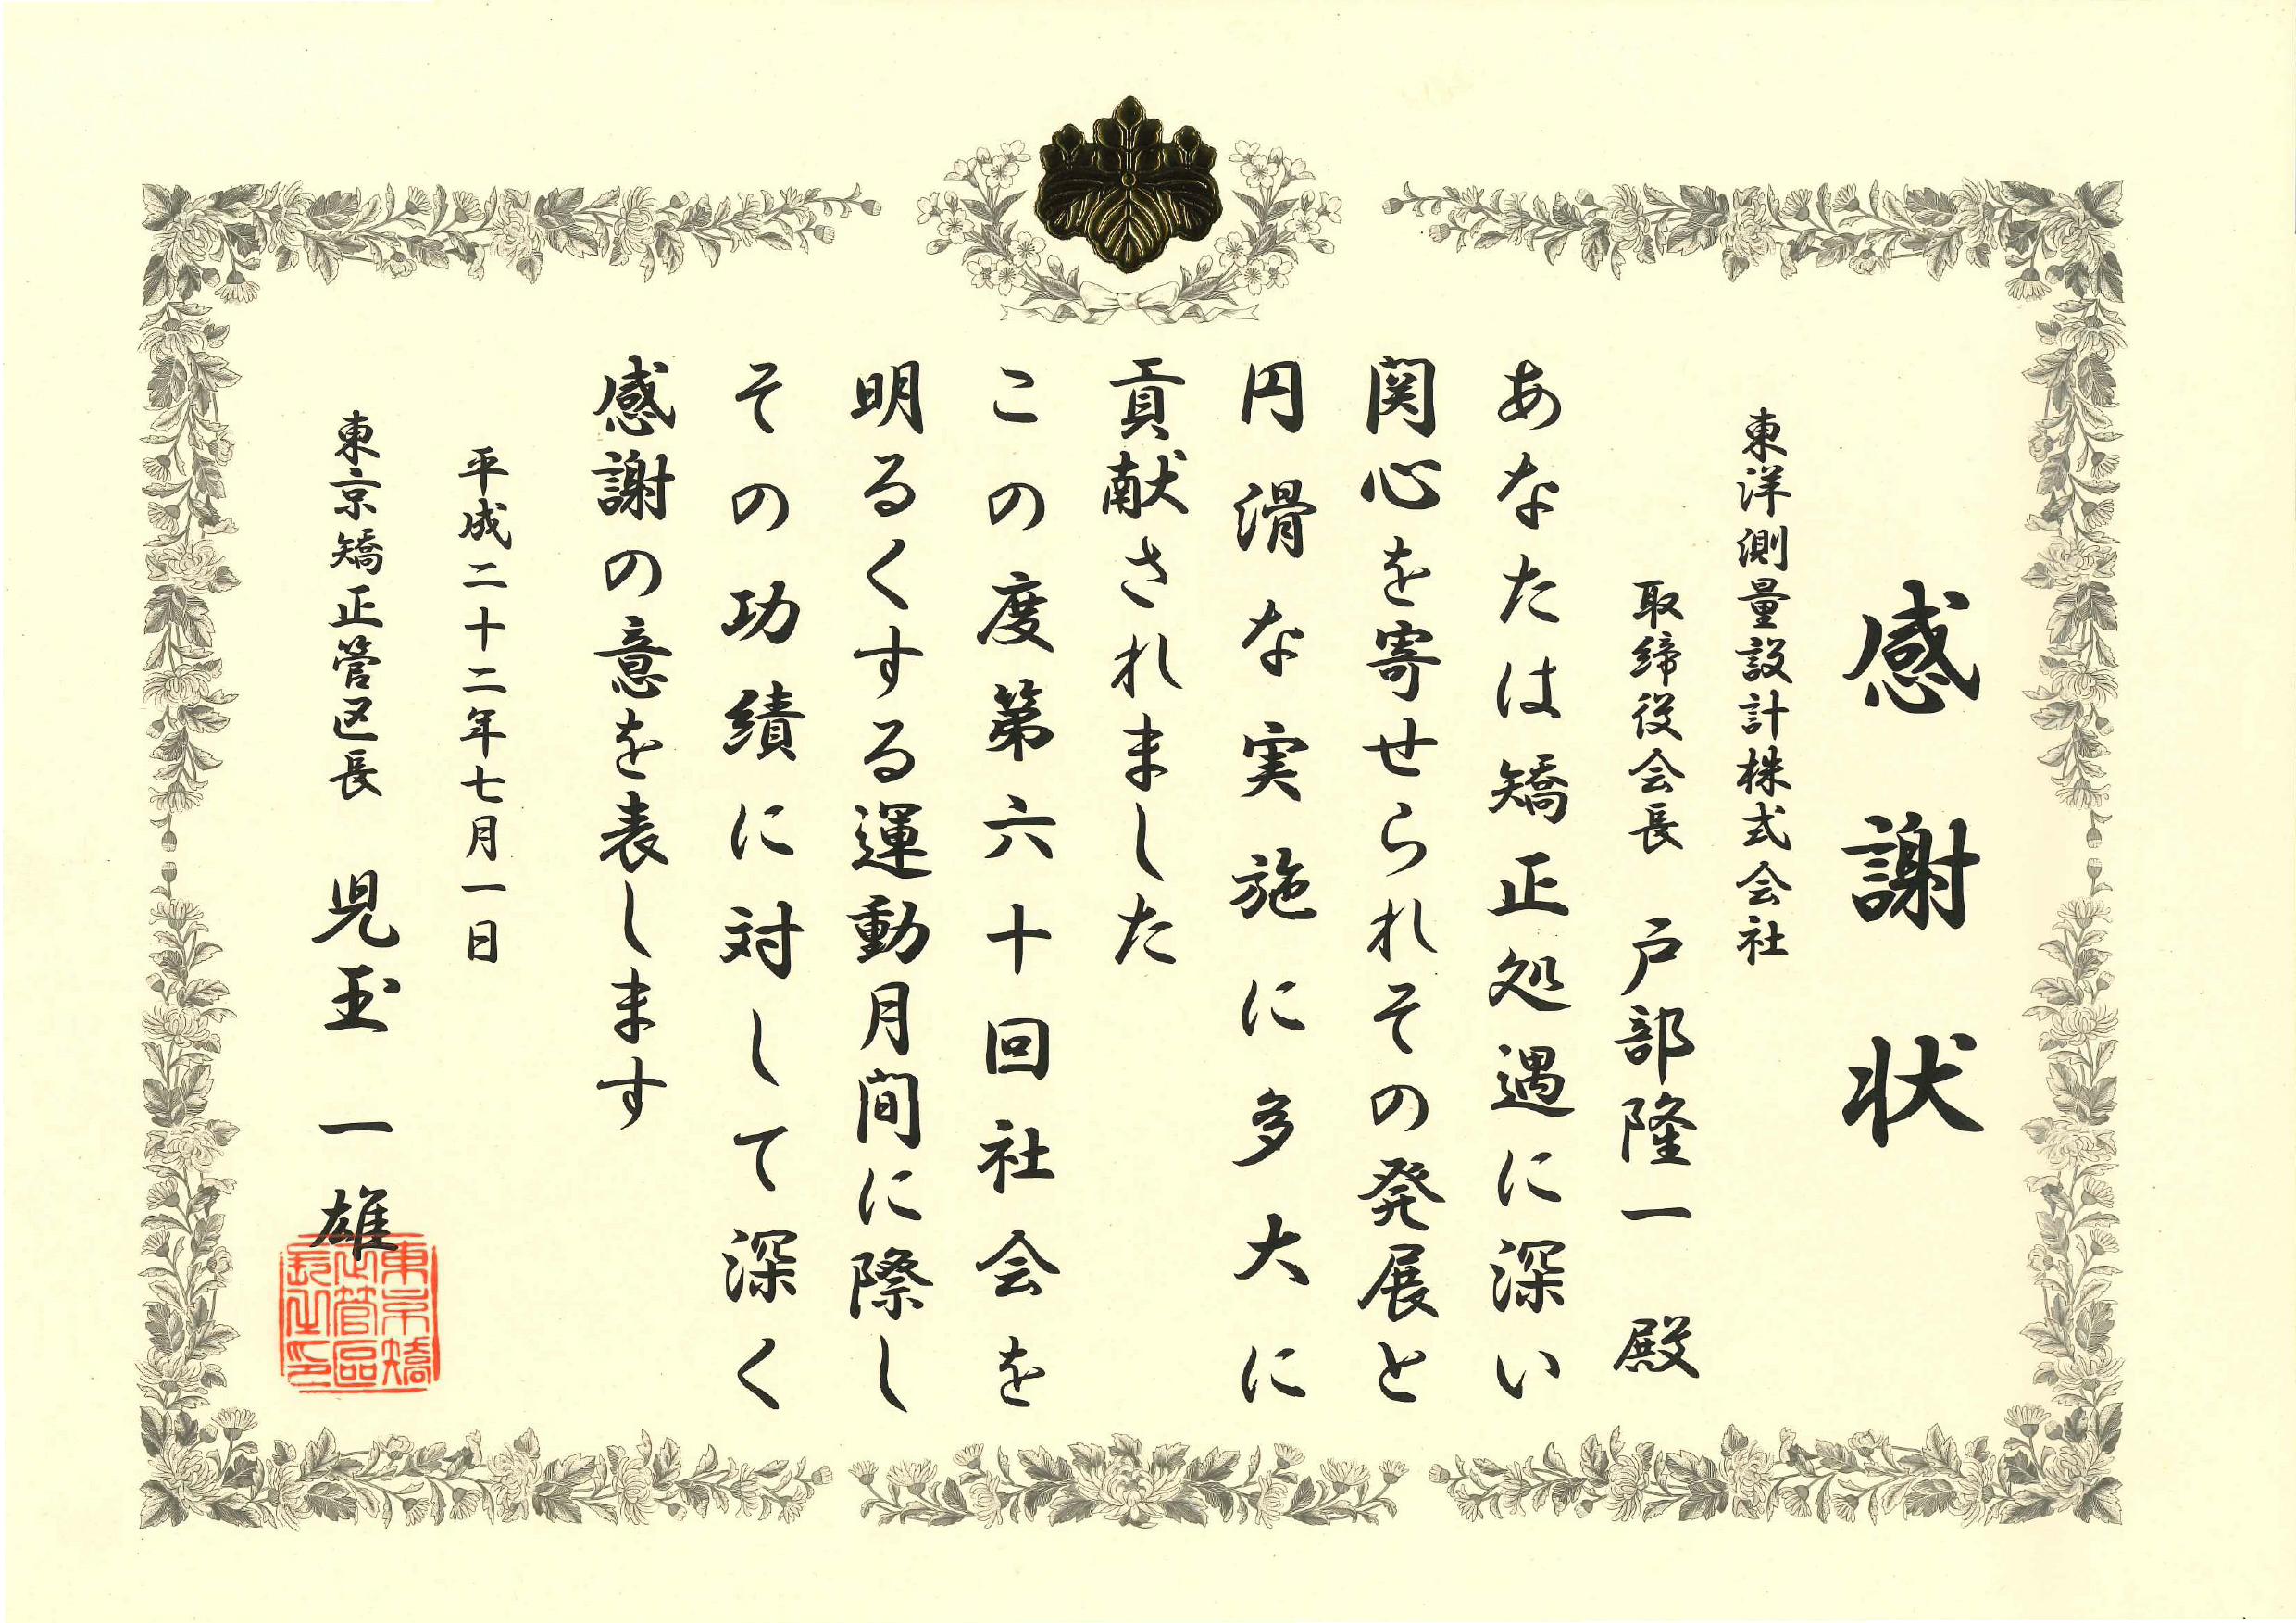 感謝状
東洋測量設計株式会社
取締役会長 戸部隆一 殿
あなたは矯正処遇に深い
関心を寄せられその発展と
円滑な実施に多大に
貢献されました
この度第六十回社会を
明るくする運動月間に際し
その功績に対して深く
感謝の意を表します
平成二十二年七月一日
東京矯正管区長 児玉一雄
東京矯
正管區
長之印